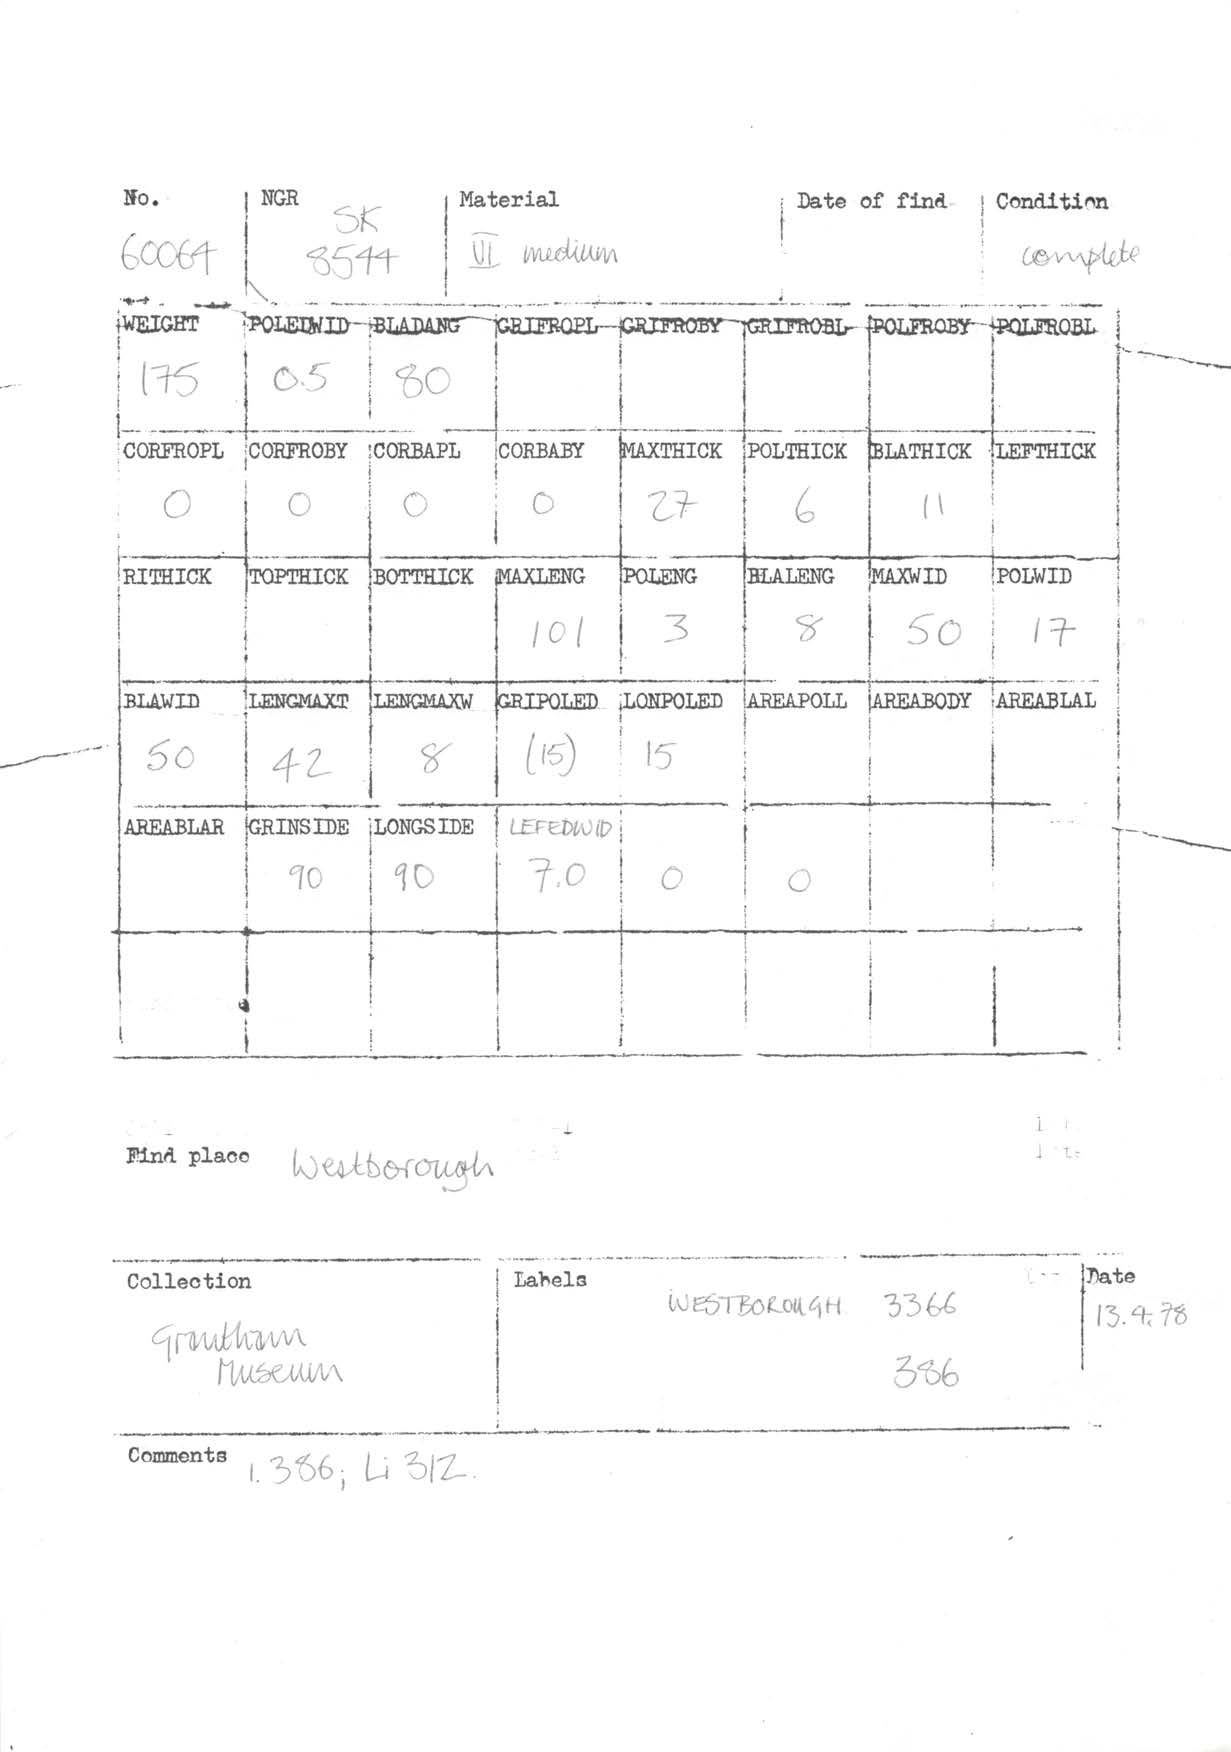 No. NGR Material Date of find Condition
SK
60064 8544 VI medium complete
WEIGHT POLEDWID BLADANG GRIFROPL GRIFROBY GRIFROBL POLFROBY POLFROBL
175 0.5 80
CORFROPL CORFROBY CORBAPL CORBABY MAXTHICK POLTHICK BLATHICK LEFTHICK
0 0 0 0 27 6 11
RITHICK TOPTHICK BOTTHICK MAXLENG POLENG BLALENG MAXWID POLWID
101 3 8 50 17
BLAWID LENGMAXT LENGMAXW GRIPOLED LONPOLED AREAPOLL AREABODY AREABLAL
50 42 8 (15) 15
AREABLAR GRINSIDE LONGSIDE LEFEDWID
90 90 7.0 0 0
Find place Westborough
Collection Labels Date
WESTBOROUGH 3366 13.4.78
Grantham
Museum 386
Comments 1.386; Li 312.